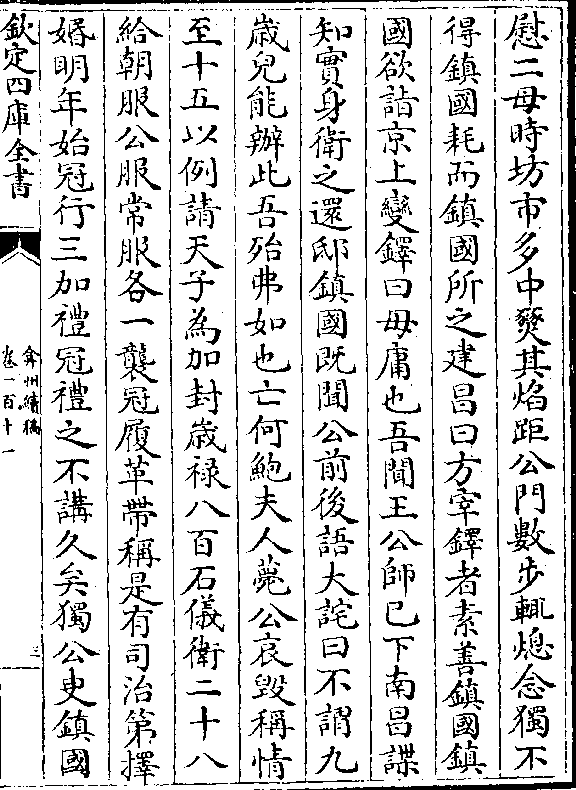 慰二母時坊市多中燹其焰距公門數步輒熄念獨不
得鎮國耗而鎮國所之建昌曰方宰鐸者素善鎮國鎮
國欲詣京上變鐸曰毋庸也吾聞王公師已下南昌諜
知實身衛之還邸鎮國既聞公前後語大詫曰不謂九
歲兒能辦此吾殆弗如也亡何鮑夫人薨公哀毀稱情
至十五以例請天子為加封歲祿八百石儀衛二十八
給朝服公服常服各一襲冠履革帶稱是有司治第擇
婚明年始冠行三加禮冠禮之不講久矣獨公史鎮國
欽定四庫全書
弇州續稿
卷一百十一
三